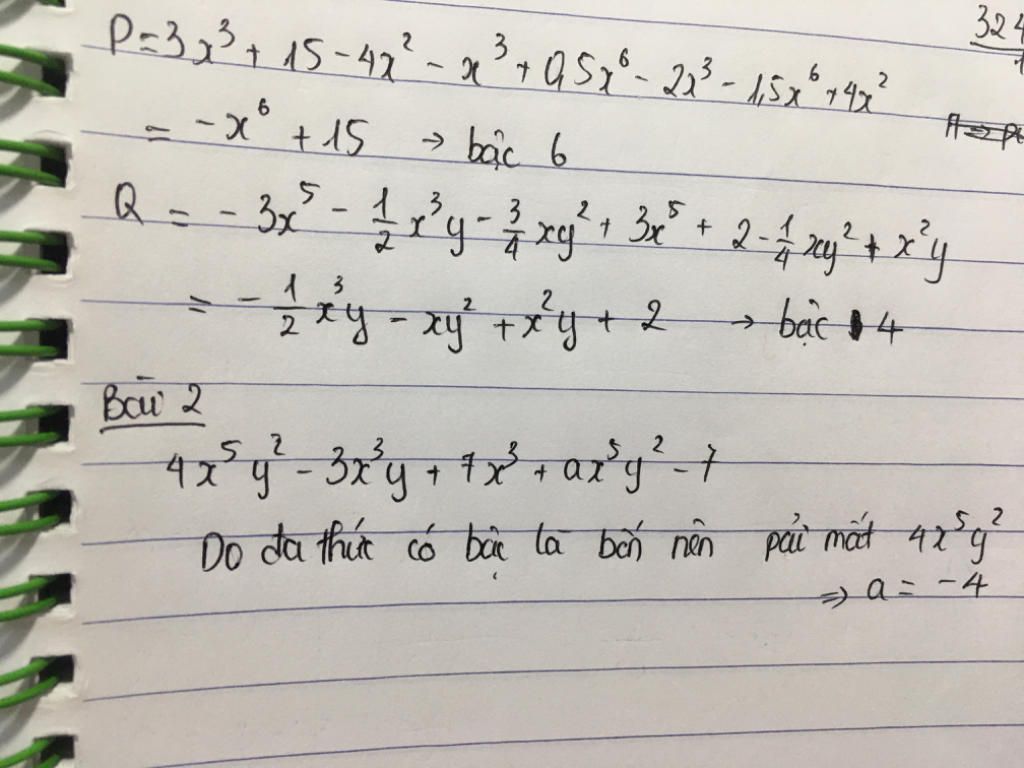 324
P = 3x³ + 15 - 4x² - x³ + 0,5x⁶ - 2x³ - 1,5x⁶ + 4x²
= -x⁶ + 15 → bậc 6
Q = -3x⁵ - 1/2 x³y - 3/4 xy² + 3x⁵ + 2 - 1/4 xy² + x²y
= -1/2 x³y - xy² + x²y + 2 → bậc 4
Bài 2
4x⁵y² - 3x³y + 7x³ + ax⁵y² - 7
Do đa thức có bậc là bốn nên pải mất 4x⁵y²
⇒ a = -4